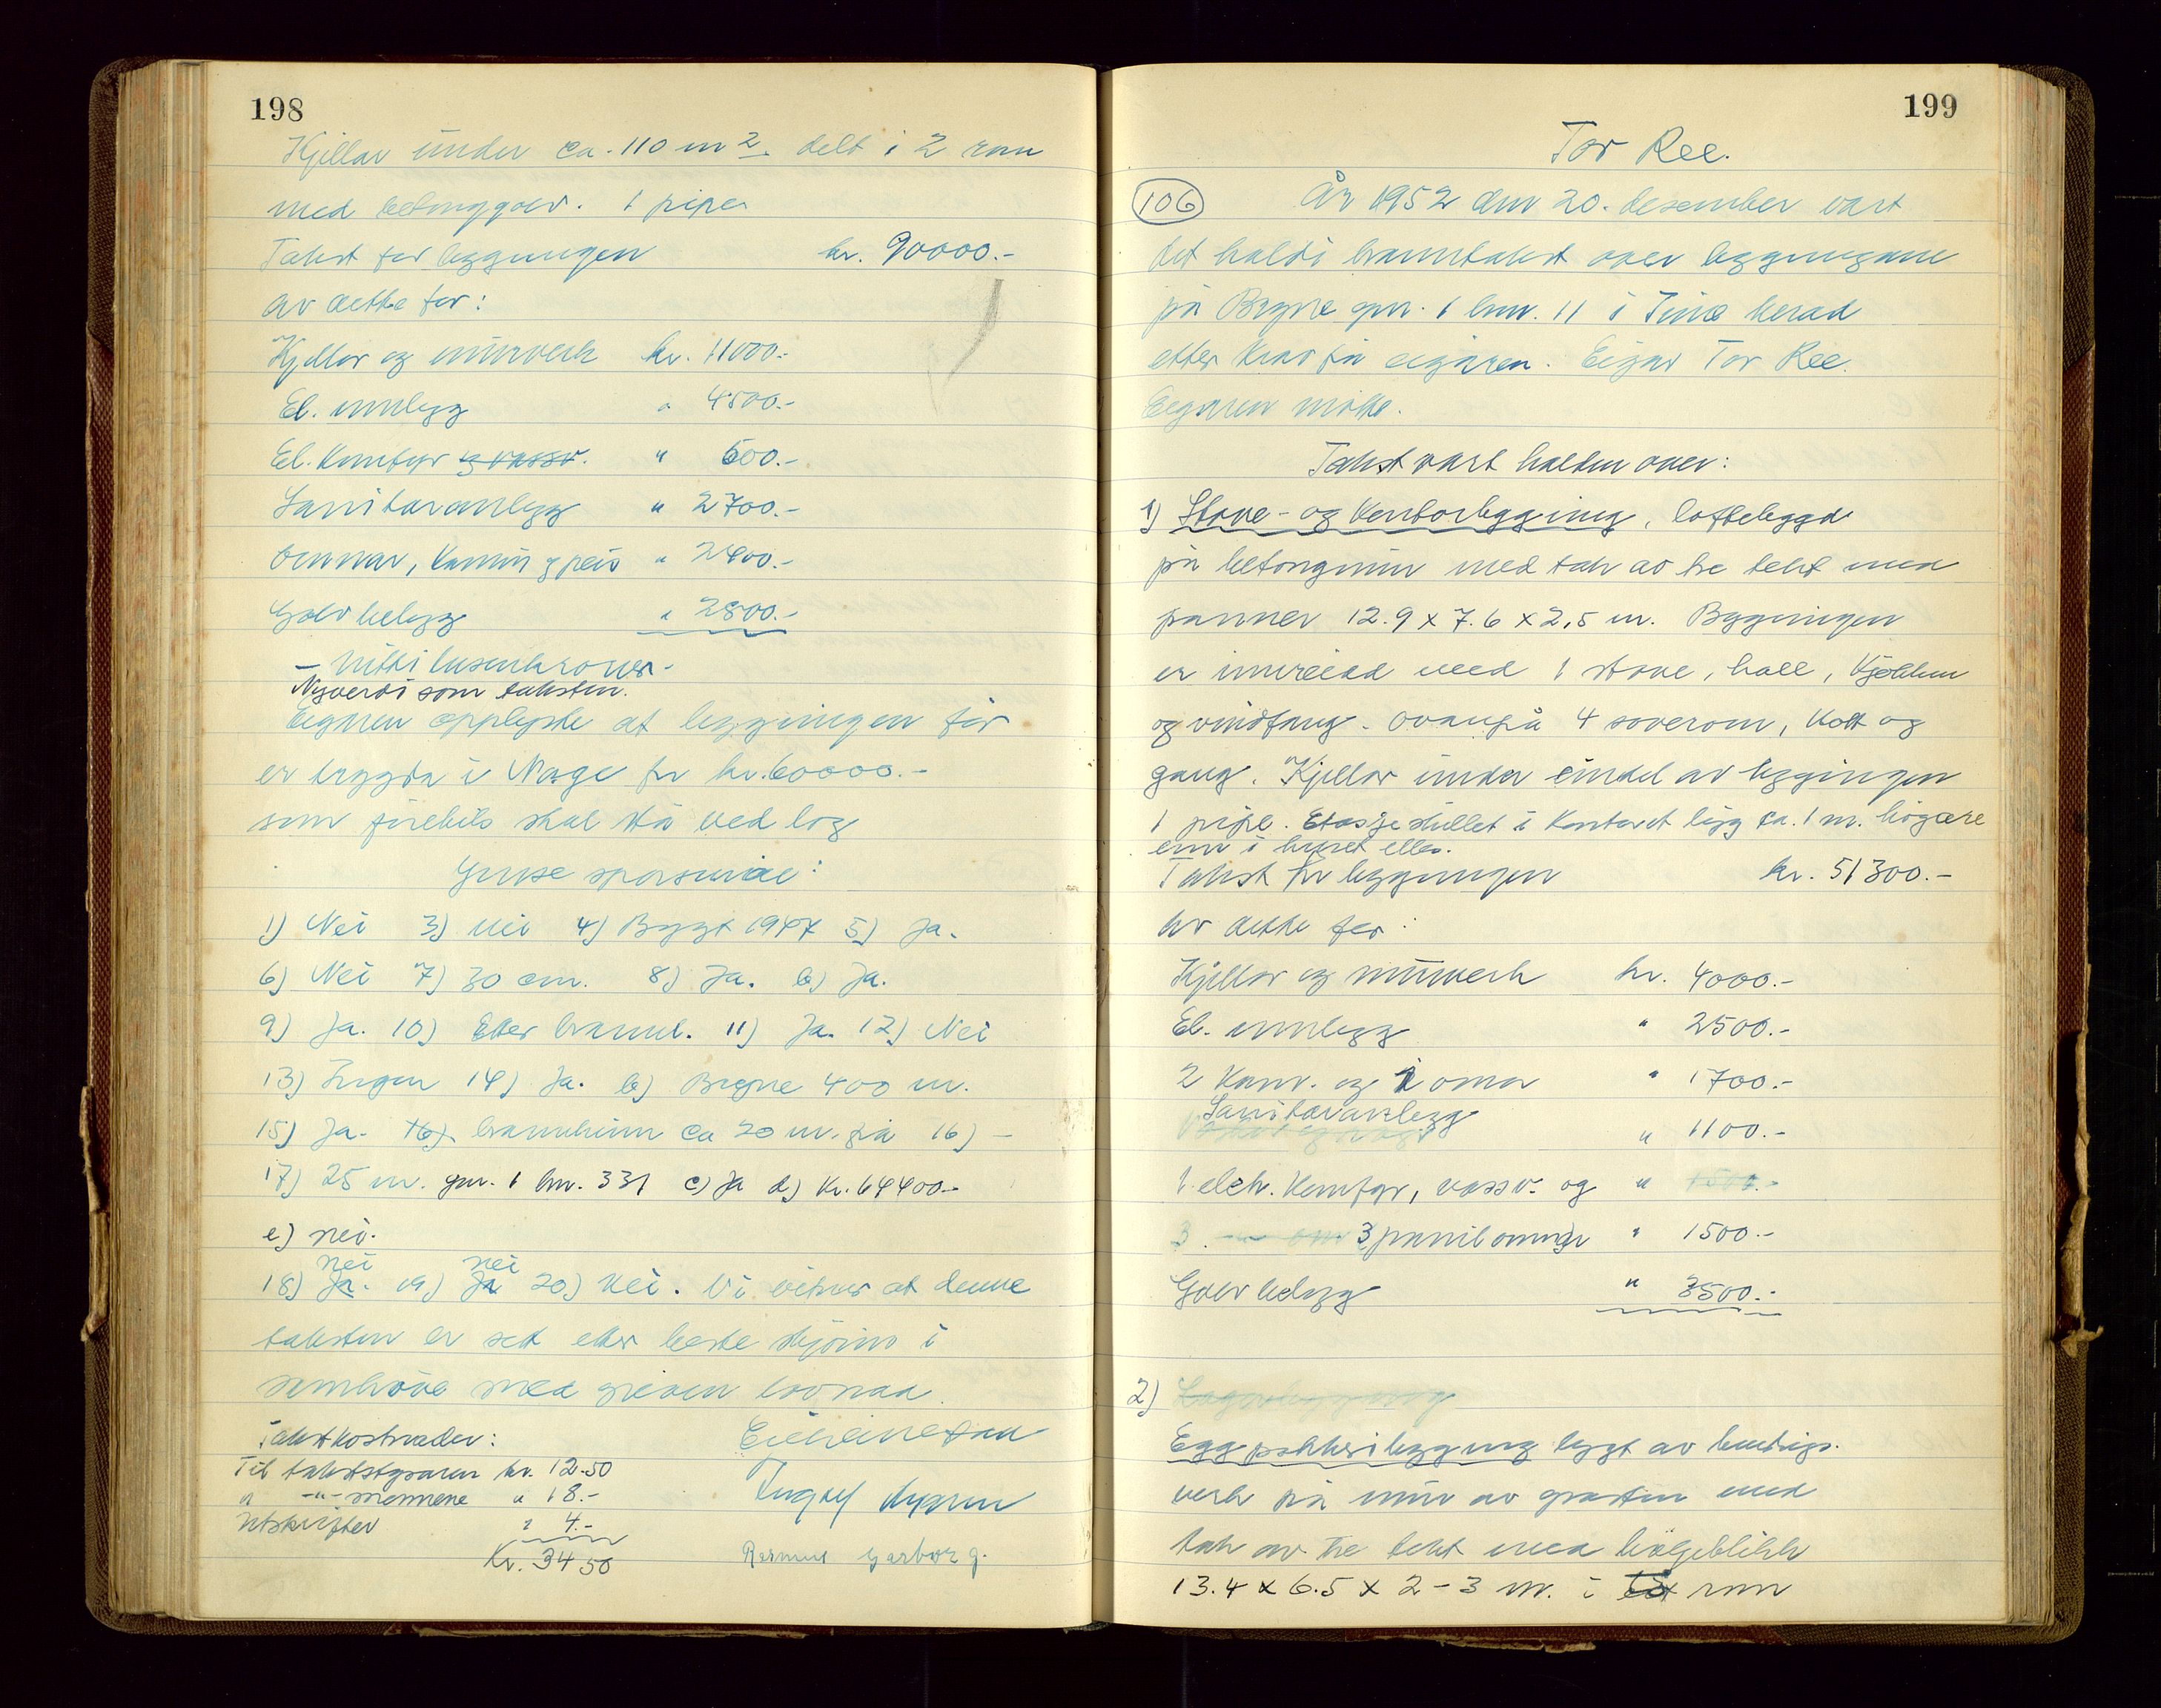 198
Kjellar under ca. 110 m2. delt i 2 rom
med betonggolv. 1 pipe
Takst for bygningen kr. 90000.-
av dette for:
Kjellar og murverk kr. 11000.-
El. innlegg " 4500.-
El. Komfyr og vassv. " 600.-
Sanitæranlegg " 2700.-
Omnar, Kamin og peis " 2400.-
Golvbelegg " 2800.-
- Nitti tusen kroner -
Nyverdi som taksten.
Eigaren opplyste at bygningen før
er trygda i Norge for kr. 60000.-
som firebils skal stå ved lag
Gruse spørsmaal:
1) Nei 3) Nei 4) Bygt 1947 5) Ja.
6) Nei 7) 30 cm. 8) Ja. b) Ja.
9) Ja. 10) Etter brannl. 11) Ja. 12) Nei
13) Ingen 14) Ja. b) Bryne 400 m.
15) Ja. 16) brannkum ca 20 m. frå 16) -
17) 25 m. gnr. 1 bnr. 331 c) Ja d) Kr. 64400.-
e) nei.
nei nei
18) Ja. 19) Ja 20) Nei. Vi vitnar at denne
taksten er sett etter beste skjønn i
samhøve med greven lovnad.
Takstkostnader:
Til takststyraren kr. 12.50
" -"- mennene " 18.-
Utskrifter " 4.-
Kr. 34 50
Rasmus Garborg.
199
Tor Ree.
106 År 1952 den 20. desember vart
det haldi branntakst over bygningane
på Bryne gnr. 1 bnr. 11 i Time herad
etter krav frå eigaren. Eigar Tor Ree.
Eigaren møtte.
Takst vart halden over:
1) Stove- og Kontorbygning, loftebygd
på betongmur med tak av tre tekt med
panner 12.9 x 7.6 x 2,5 m. Bygningen
er innreidd med 1 stove, hall, Kjøkken
og vindfang. Ovanpå 4 soverom, Kott og
gang. Kjellar under eindel av bygningen
1 pipe. Etasjeskillet i Kontoret ligg ca. 1 m. høgare
enn i huset elles.
Takst for bygningen kr. 51300.-
Av dette for:
Kjellar og murverk kr. 4000.-
El. innlegg " 2500.-
2 Kam. og 1 omn " 1700.-
Sanitæranlegg
" 1100.-
1 elek. Komfyr, vassv. og " 1500.-
3 3 panelomnar " 1500.-
Golvbelegg " 3500.-
2) Lagerbygning
Eggpakkeribygning bygt av bindings-
verk på mur av gråstein med
tak av tre tekt med bølgeblikk
13.4 x 6.5 x 2-3 m. i eit rom